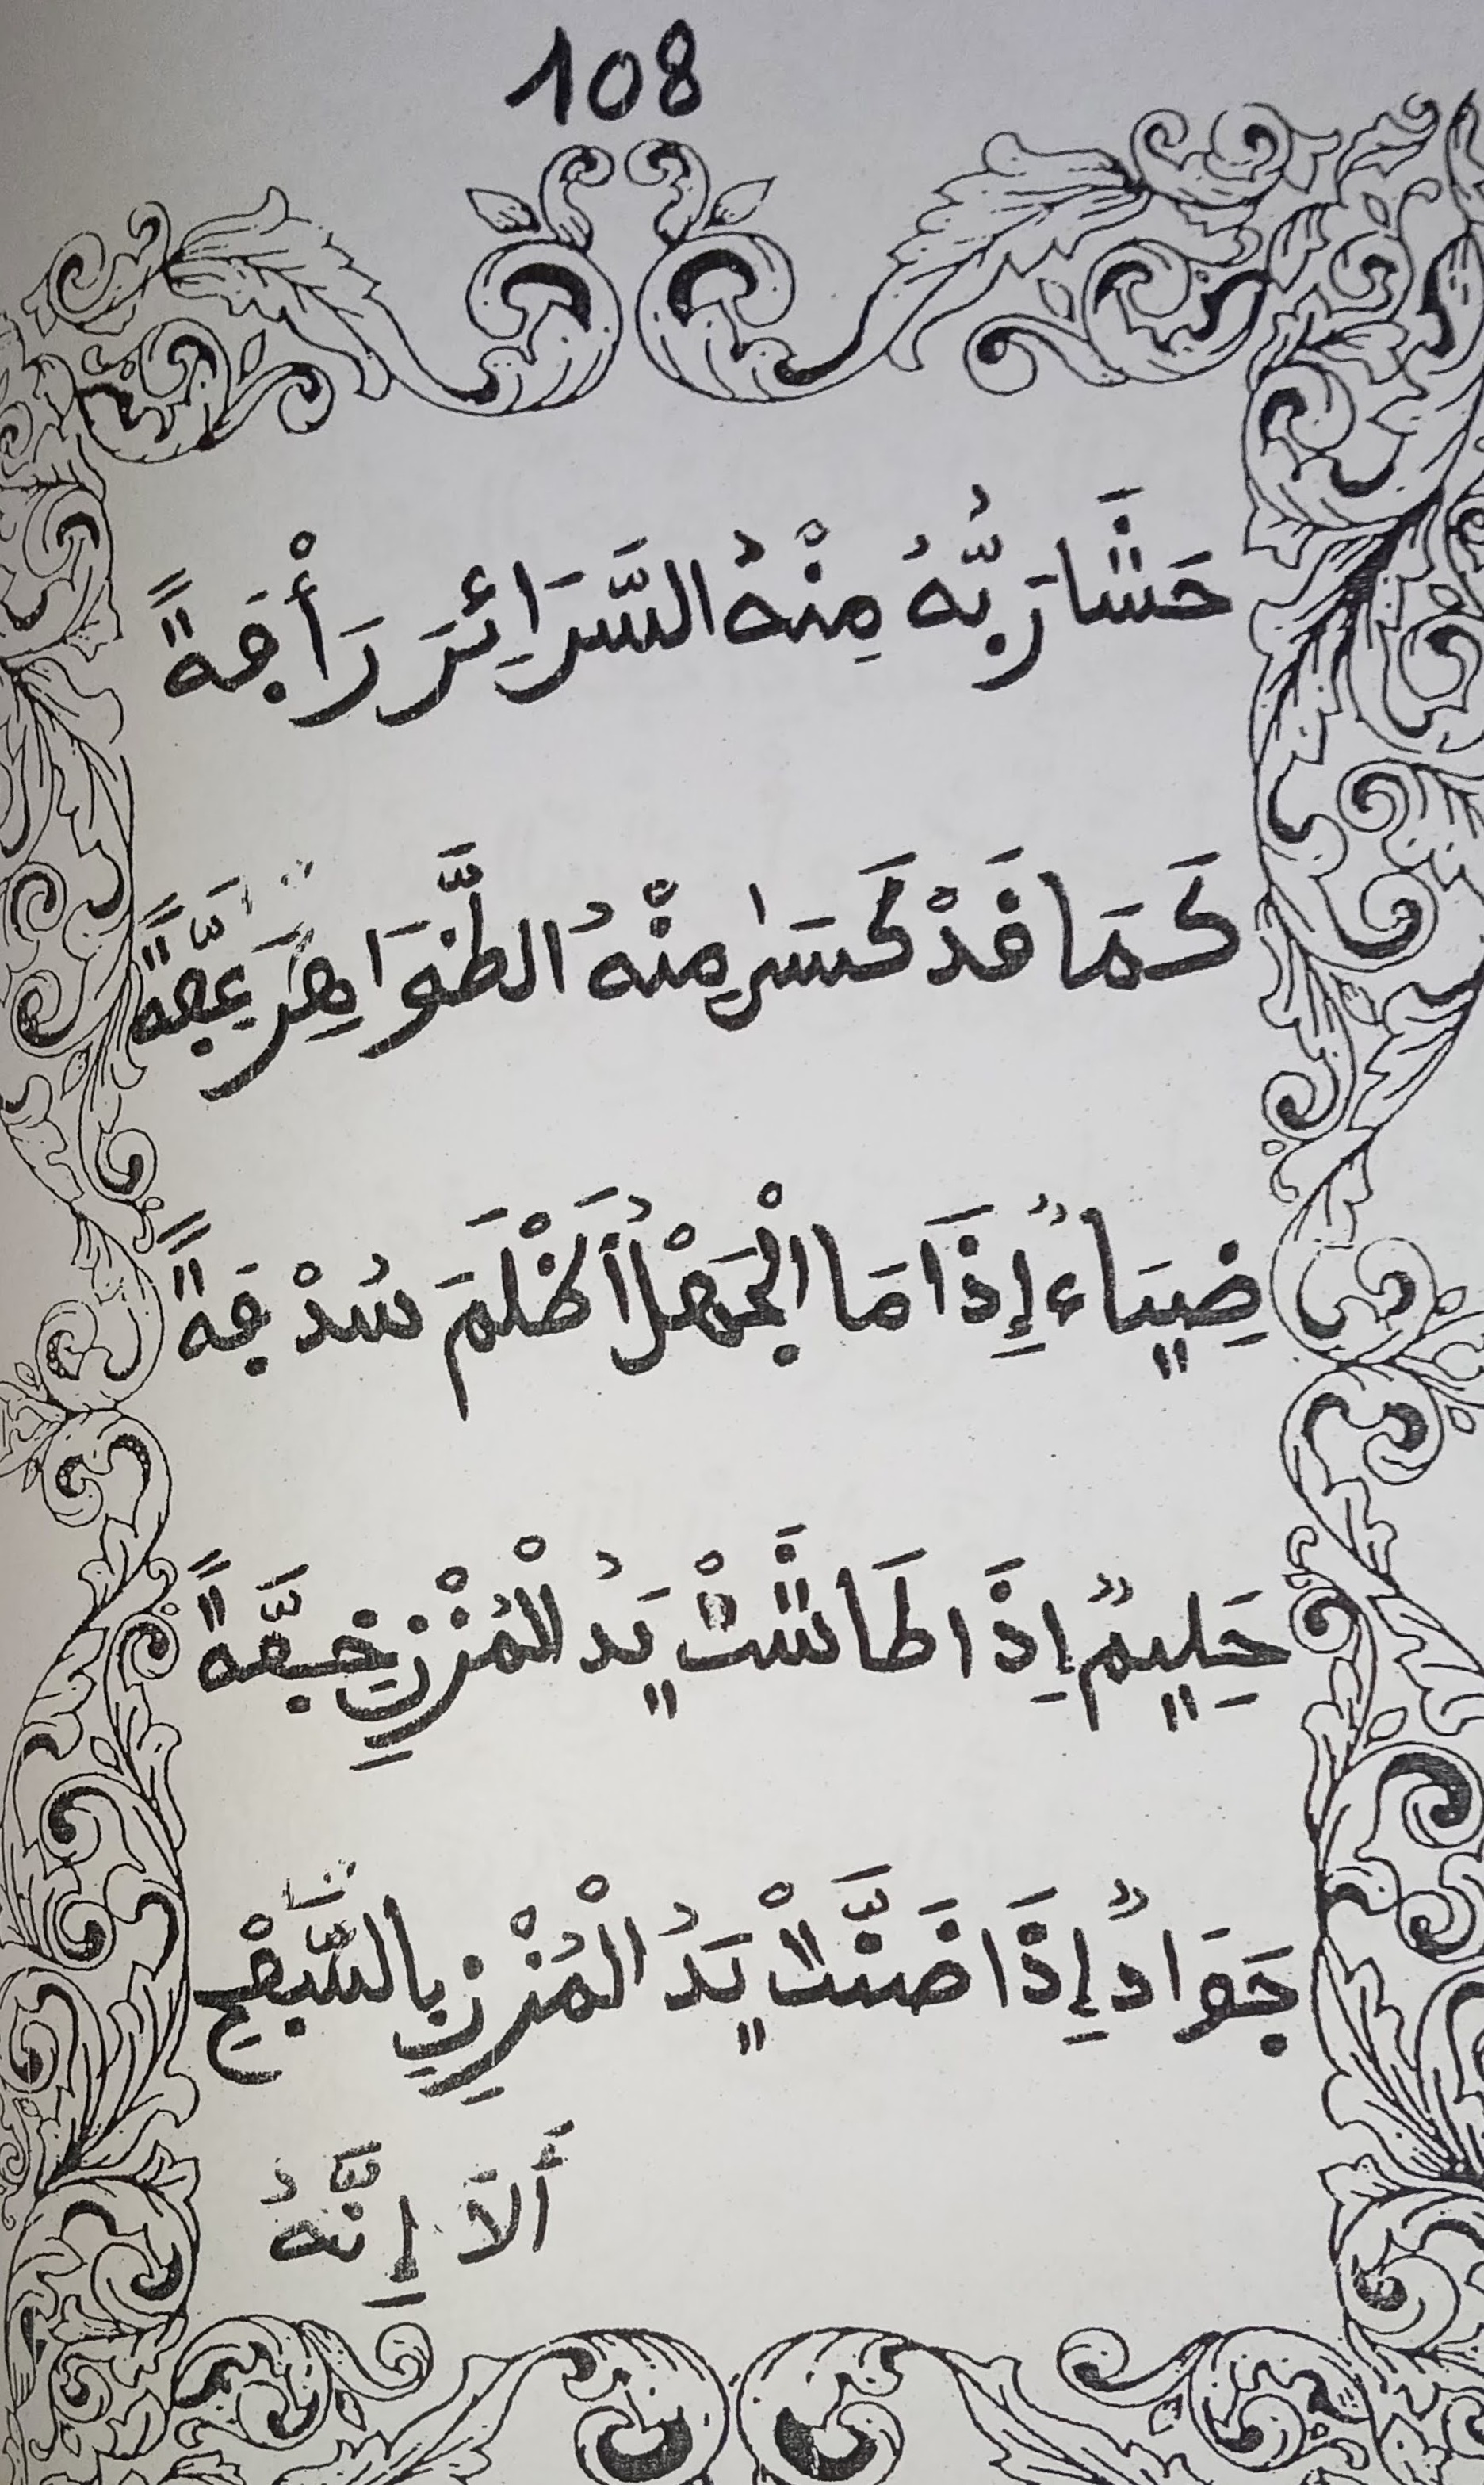 108
حَشَا رَبُّهُ مِنْهُ السَّرَائِرَ رَأْفَةً
كَمَا قَدْ كَسَى مِنْهُ الظَّوَاهِرَ عِفَّةً
ضِيَاءٌ إِذَا مَا الْجَهْلُ أَظْلَمَ سُدْفَةً
حَلِيمٌ إِذَا طَاشَتْ يَدُ الْمُزْنِ خِفَّةً
جَوَادٌ إِذَا ضَنَّتْ يَدُ الْمُزْنِ بِالسَّفْحِ
أَلاَ إِنَّهُ